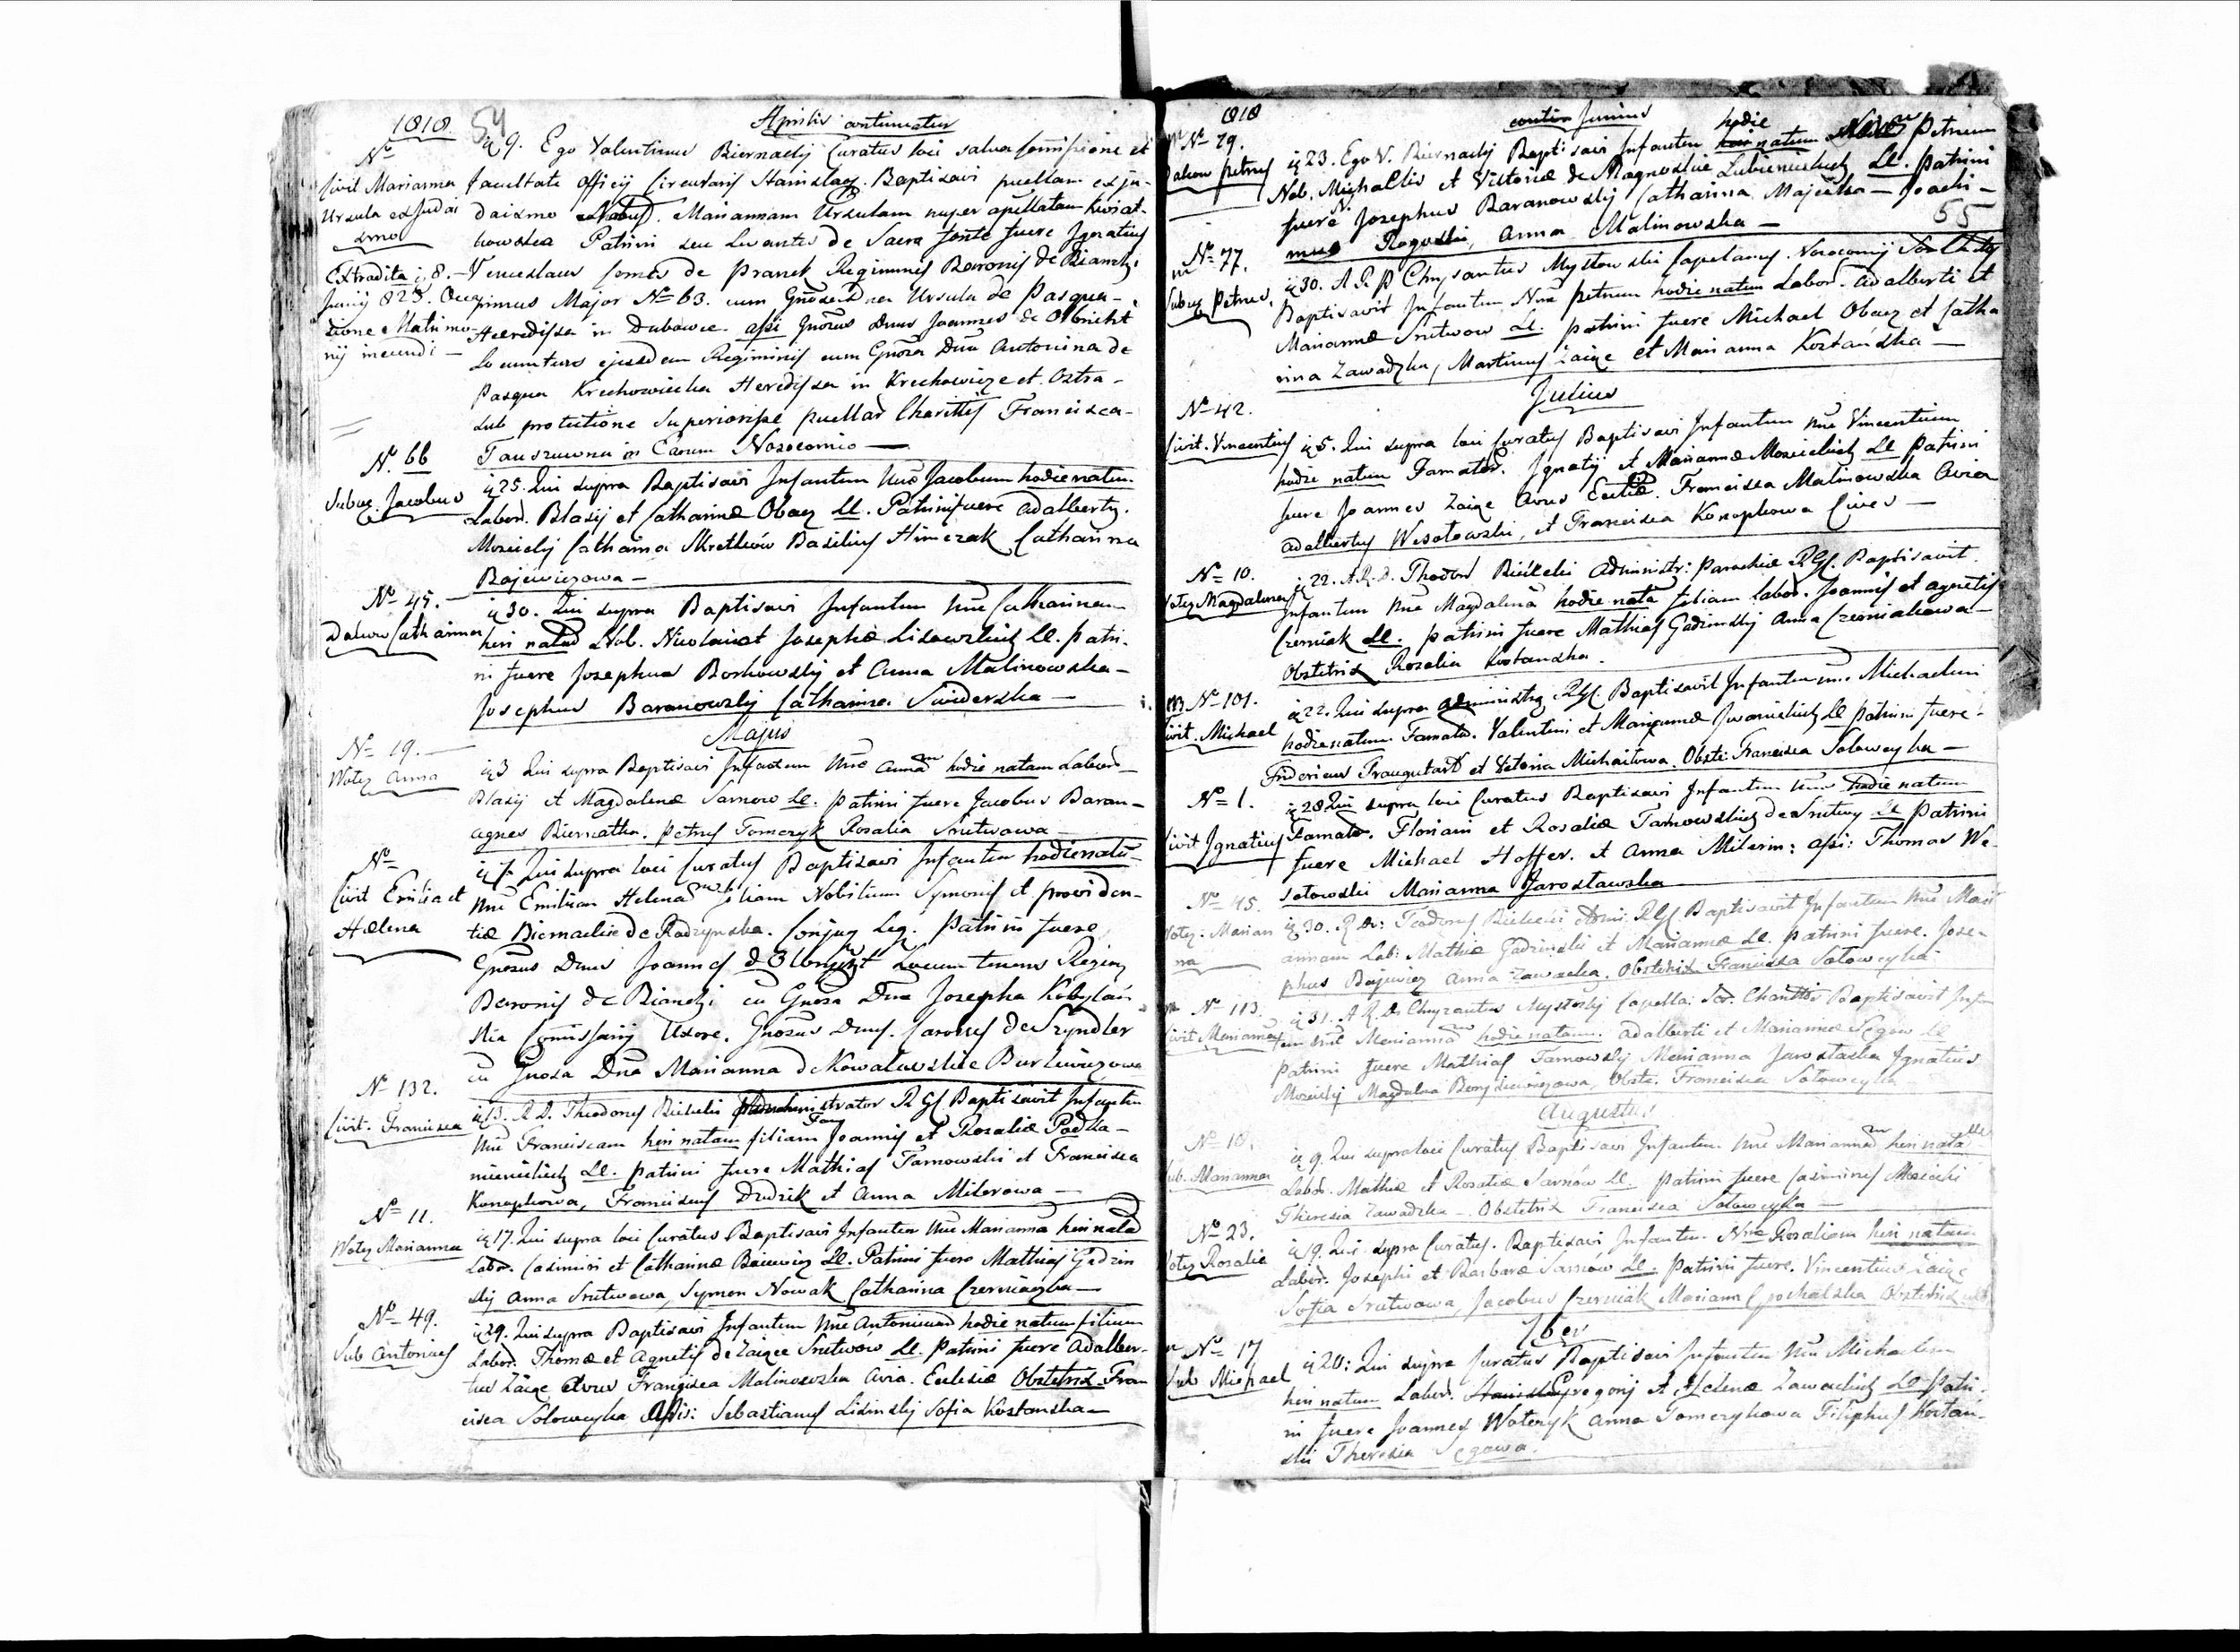 1818. 54
Aprilis continuatur
No
Civit Marianna
Ursula ex Judai
smo
Extradita i. 8.
Junij 825. Occa
sione Matrimo
nij ineundi
9. Ego Valentinus Biernacky Curatus loci salva Comissione et
facultate officij Circularis Stanislao. Baptisavi puellam ex ju-
daismo Mariannam Ursulam nuper apellatam Kwiat-
kowska Patrini seu Levantes de Sacro fonte fuere Ignatius
Venceslaus Comes de Pranck Regiminis Baronis de Bianchi
primus Major No 63. cum Ursula de Pasqua-
Heredissa in Dubowce. assi Dnus Joannes de Olbricht
Locumtenens ejusdem Regiminis cum Dna Antonina de
Pasqua Krechowiecka Heredissa in Krechowicze et Ostra-
sub protectione Superiorissae puellar Charittis Francisca-
Nosocomio
N. 66
Subuz. Jacobus
25. Qui supra Baptisavi Infantem Nne Jacobum hodie natum
Labor. Blasij et Catharinae Obacz LL. Patrini fuere Adalbertus
Moscicky Catharina Basilius Catharina
Bajewiczowa
No 45.
Dalow Catharina
30. Qui supra Baptisavi Infantem Nne Catharinam
heri natam Nob. Nicolai et Josephae Lisowskich LL. Patri-
ni fuere Josephus Borkowsky et Anna Malinowska
Josephus Baranowsky Catharina Swiderska
Majus
No 19.
Wolcz Anna
3 Qui supra Baptisavi Infantem Nne Annam hodie natam Labor.
Blasij et Magdalenae Sarnow LL. Patrini fuere Jacobus Baran-
Agnes Biernatka. Petrus Tomczyk Rosalia Srutwowa
No
Civit Emilia et
Helena
7. Qui supra loci Curatus Baptisavi Infantem hodie natam
Nne Emiliam Helenam filiam Nobilium Symonis et providen-
tiae Biernackie de Radzynska. Conjug Leg. Patrini fuere
Dnus Joannes d Olbricht Locumtenens Regim
Baronis de Bianchi cu Dna Josepha Kobylań
ska Comissarij Uxore. Dnus. Carolus de Szyndler
cu Dna Marianna de Kowalewskie
No 132.
Civit. Francisca
13. R. D. Theodorus Bielecki Administrator R. G. Baptisavit Infantem
Nne Franciscam heri natam filiam Fam Joannis et Rosaliae Podka-
minieckich LL. patrini fuere Mathias Tarnowski et Francisca
Konopkowa, Franciscus Dudzik et Anna Milerowa
No 11.
Wolcz Marianna
17. Qui supra loci Curatus Baptisavi Infantem Nne Marianna heri natam
Labor. Casimiri et Catharinae Baiewicz LL. Patrini fuere Mathias Gadzin
sky Anna Srutwowa, Symon Nowak Catharina Czerniaczka
No 49.
Sub Antonius
29. Qui supra Baptisavi Infantem Nne Antonium hodie natum filium
Labor. Thomae et Agnetis de Zaiące Srutwów LL. Patrini fuere Adalber-
tus Zaiąc Avus Francisca Malinowska Avia. Eclesiae Obstetrix Fran
cisca Solowcyka Assis: Sebastianus Lisinsky Sofia Kostanska
1818
contin Junius
55
No 29.
Dalow Petrus
23. Ego V. Biernacky Baptisavi Infantem hodie natum Petrum
Nob. Michaelis et Victoriae de Ragowskie Lubienieckich LL. Patrini
fuere Josephus Baranowsky Catharina Majewska Joachi-
mus Rogoski, Anna Malinowska
No 77.
Subuz Petrus.
30. A R P Chrysantus Mysłowski Capelanus. Nosocomij
Baptisavit Infantem Nne Petrum hodie natum Labor. Adalberti et
Mariannae Srutwow LL. Patrini fuere Michael Obacz et Catha
rina Zawadzka, Martinus Zaiąc et Marianna Kostańska
Julius
No 42.
Civit. Vincentius
5. Qui supra loci Curatus Baptisavi Infantem Nne Vincentium
hodie natum Famator. Ignatij et Mariannae Moscickich LL Patrini
fuere Joannes Zaiąc Avus Eccliae. Francisca Malinowska Avia
Adalbertus Wesołowski, et Francisca Konopkowa Cives
No 10.
Wolcz Magdalena
22. A. R. D. Theodor Bielecki Administr: Parochiae R. G. Baptisavit
Infantem Nne Magdalena hodie nata filiam Labor. Joannis et Agnetis
Czerniak LL. patrini fuere Mathias Gadzinsky Anna Czerniakowa
Obstetrix Rosalia Kostanska.
No 101.
Civit. Michael
22. Qui supra administra R. G. Baptisavit Infantem Michaelem
hodie natum Famato. Valentini et Mariannae Iwanickich LL Patrini fuere
Fridericus Traugutard et Victoria Michaiłowa. Obste: Francisca Solowcyka
No 1.
Civit Ignatius
28 Qui supra loci Curatus Baptisavi Infantem Nne hodie natum
Famato. Floriani et Rosaliae Tarnowskich de Srutwy LL Patrini
fuere Michael Hoffer. et Anna Milerin: assi: Thomas We-
sołowski Marianna Jarosławska
No 45.
Wolcz. Marian
na
30. R. Dr: Teodorus Bielecki Admi: R. G. Baptisavit Infantem Nne Mari
annam Lab: Mathiae Gadzinski et Mariannae LL. patrini fuere. Jose-
phus Bajewicz Anna Zawacka. Obstetrix Francisca Sołowcyka
No 113.
Civit Marianna
31. A. R. D. Chryzantus Capella: Sor. Charittis Baptisavit Infan
tem Nne Mariannam hodie natam. Adalberti et Mariannae Segow LL
Patrini fuere Mathias Tarnowsky Marianna Jarosławska Ignatius
Moscicky Magdalena, Obste. Francisca Sołowcyka
Augustus
No 10.
Sub. Marianna
9. Qui supra loci Curatus Baptisavi Infantem Nne Mariannam heri nata
Labor. Mathiae et Rosaliae Sarnów LL. Patrini fuere Casimirus Moscicki
Theresia Zawadzka Obstetrix Francisca Solowcyka
No 23.
Wolcz Rosalia
19. Qui supra Curatus. Baptisavi Infantem. Nne Rosaliam heri natam
Labor. Josephi et Barbarae Sarnów LL. Patrini fuere. Vincentius Zaiąc
Sofia Srutwowa, Jacobus Czerniak Marianna Obstetrix
7ber
No 17
Sub Michael
20: Qui supra Curatus Baptisavi Infantem Nne Michaelem
heri natum Labor. Gregorij et Helenae Zawackich LL Patri-
ni fuere Joannes Wołczyk Anna Tomczykowa Filiphus Kostań-
ski Theresia Segowa.